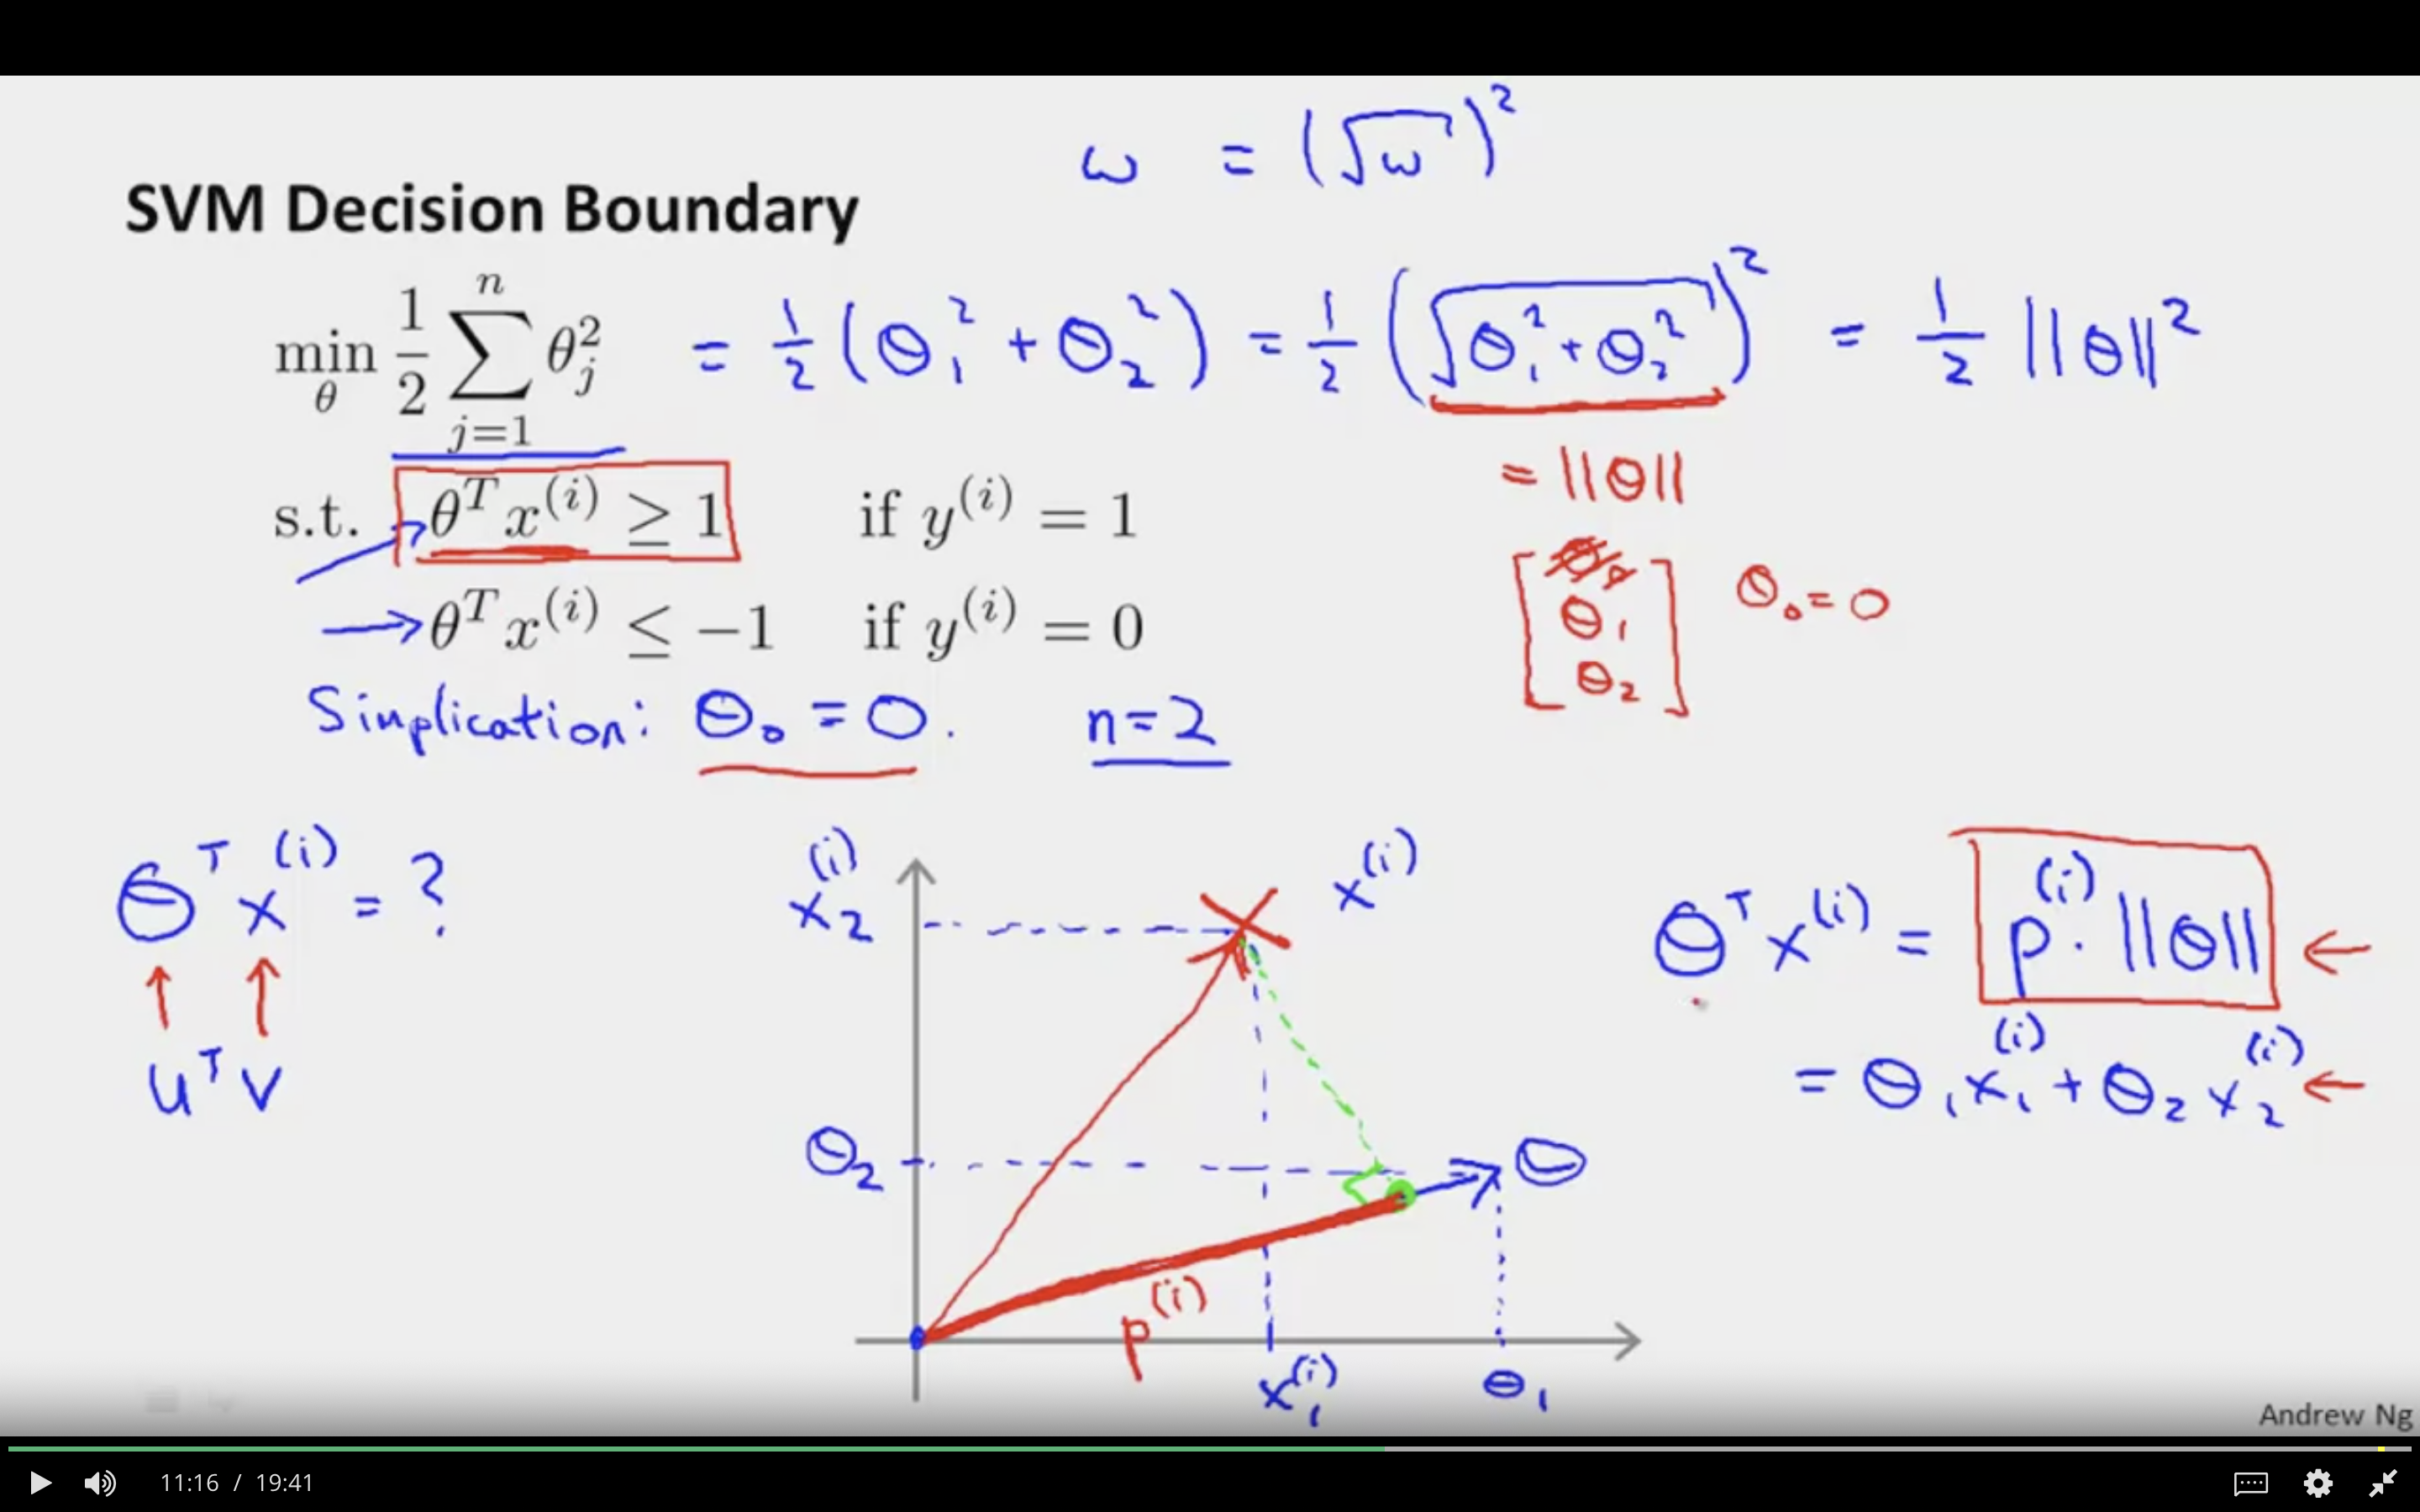 ω = (√ω)²
SVM Decision Boundary
min_θ 1/2 ∑_{j=1}^{n} θ_j² = 1/2 (θ₁² + θ₂²) = 1/2 (√(θ₁² + θ₂²))² = 1/2 ||θ||²
= ||θ||
s.t. θᵀx⁽ⁱ⁾ ≥ 1 if y⁽ⁱ⁾ = 1
θᵀx⁽ⁱ⁾ ≤ −1 if y⁽ⁱ⁾ = 0
[θ₀ θ₁ θ₂] θ₀ = 0
Simplication: θ₀ = 0. n=2
θᵀx⁽ⁱ⁾ = ?
uᵀv
x₂⁽ⁱ⁾
x⁽ⁱ⁾
θ₂
θ
p⁽ⁱ⁾
x₁⁽ⁱ⁾
θ₁
θᵀx⁽ⁱ⁾ = p⁽ⁱ⁾ · ||θ|| ←
= θ₁x₁⁽ⁱ⁾ + θ₂x₂⁽ⁱ⁾ ←
Andrew Ng
11:16 / 19:41